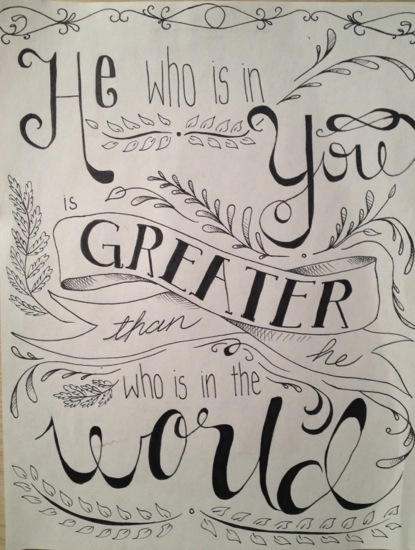 He who is in
You
is
GREATER
than he
who is in the
world